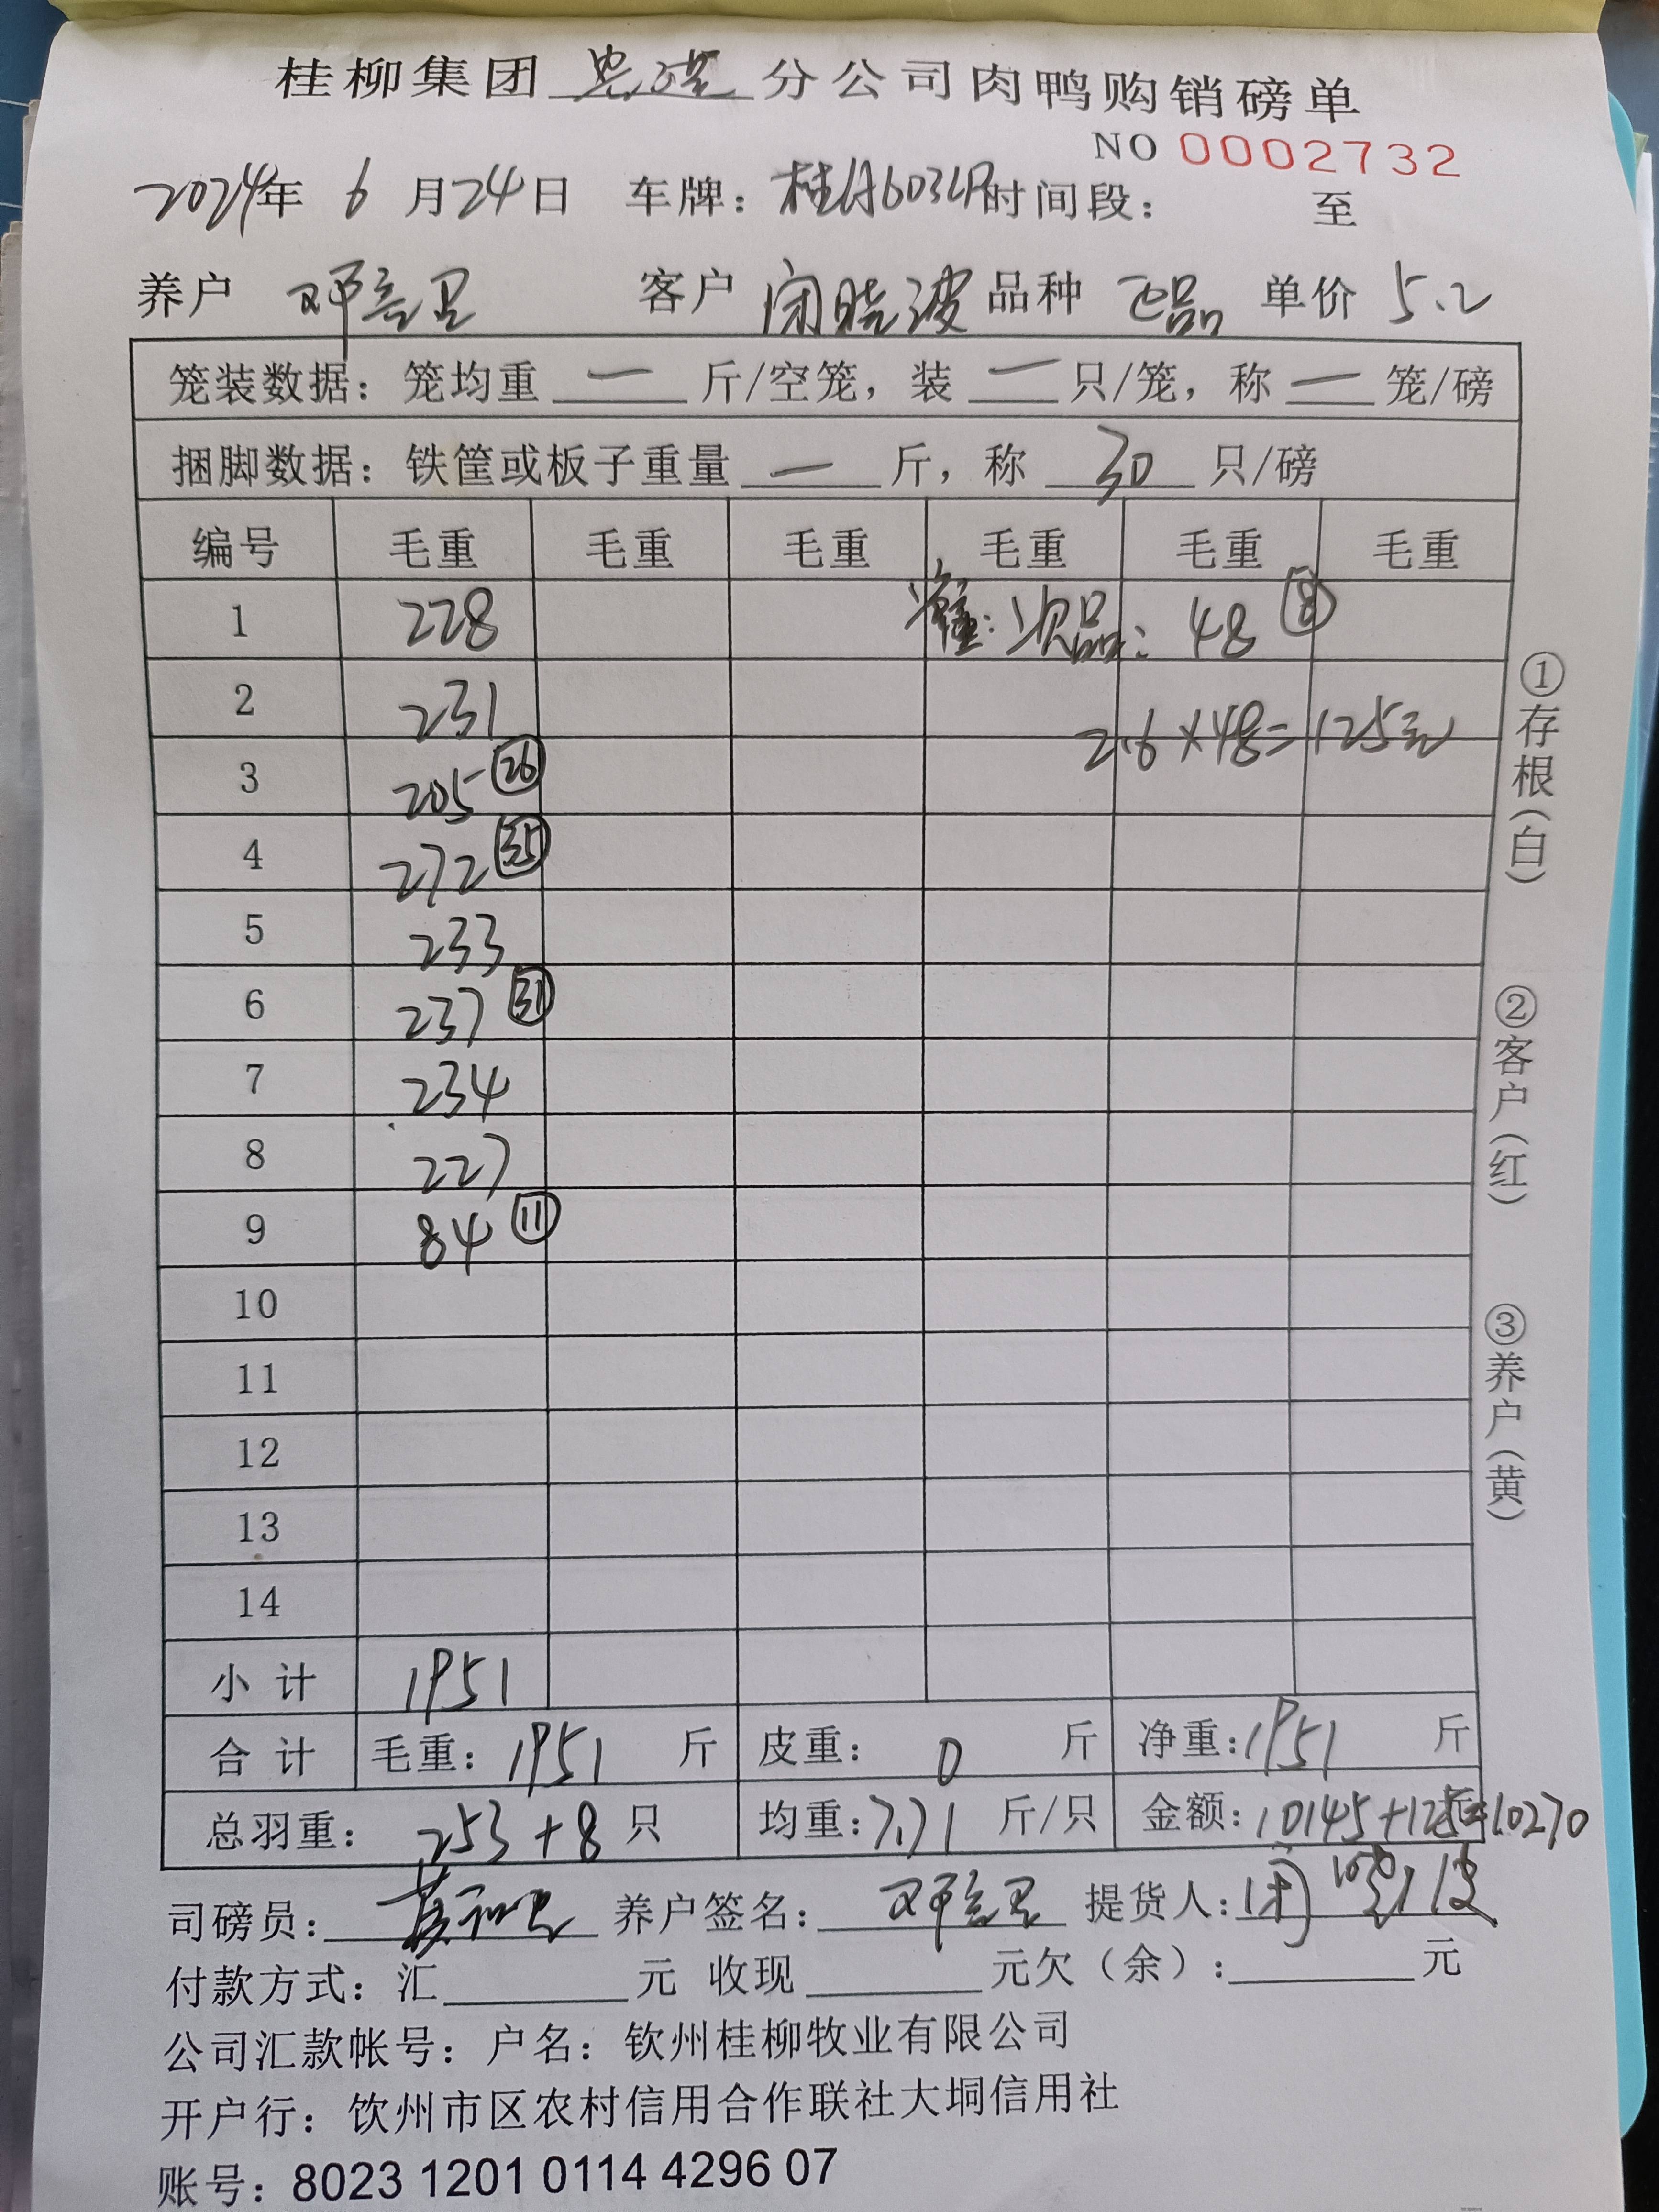 桂柳集团 分公司肉鸭购销磅单
NO 0002732
2024年 6 月 24 日 车牌: 桂A603LP 时间段: 至
养户 邓言里 客户 闭晓波 品种 正品 单价 5.2
笼装数据: 笼均重 一 斤/空笼, 装 一 只/笼, 称 一 笼/磅
捆脚数据: 铁筐或板子重量 一 斤, 称 30 只/磅
编号 毛重 毛重 毛重 毛重 毛重 毛重
1 228 次品: 48 ⑧
2 231 2.6×48=125元
3 205 ㉖
4 272 ㉟
5 233
6 237 ㉛
7 234
8 227
9 84 ⑪
10
11
12
13
14
小计 1951
合计 毛重: 1951 斤 皮重: 0 斤 净重: 1951 斤
总羽重: 253+8 只 均重: 7.71 斤/只 金额: 10145+125=10270
司磅员: 养户签名: 邓言里 提货人: 闭晓波
付款方式: 汇 元 收现 元欠(余): 元
公司汇款帐号: 户名: 钦州桂柳牧业有限公司
开户行: 钦州市区农村信用合作联社大垌信用社
账号: 8023 1201 0114 4296 07
①存根(白)
②客户(红)
③养户(黄)